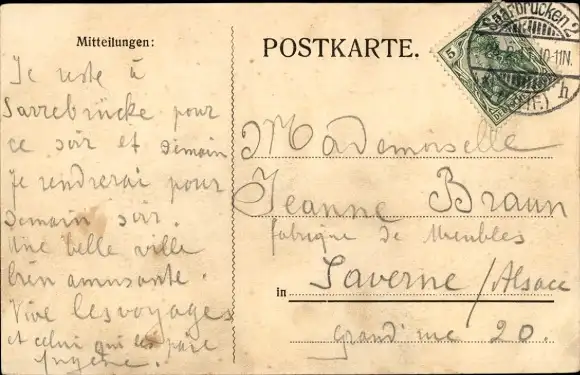 Mitteilungen:
Je reste à
Sarrebrücke pour
ce soir et demain
Je rendrerai pour
demain soir.
Une belle ville
bien amusante.
Vive les voyages
et celui qui les paie
Eugène.
POSTKARTE.
Saarbrücken 2
10-11N.
h
5
Mademoiselle
Jeanne Braun
fabrique de meubles
in Saverne / Alsace
grand'rue 20.